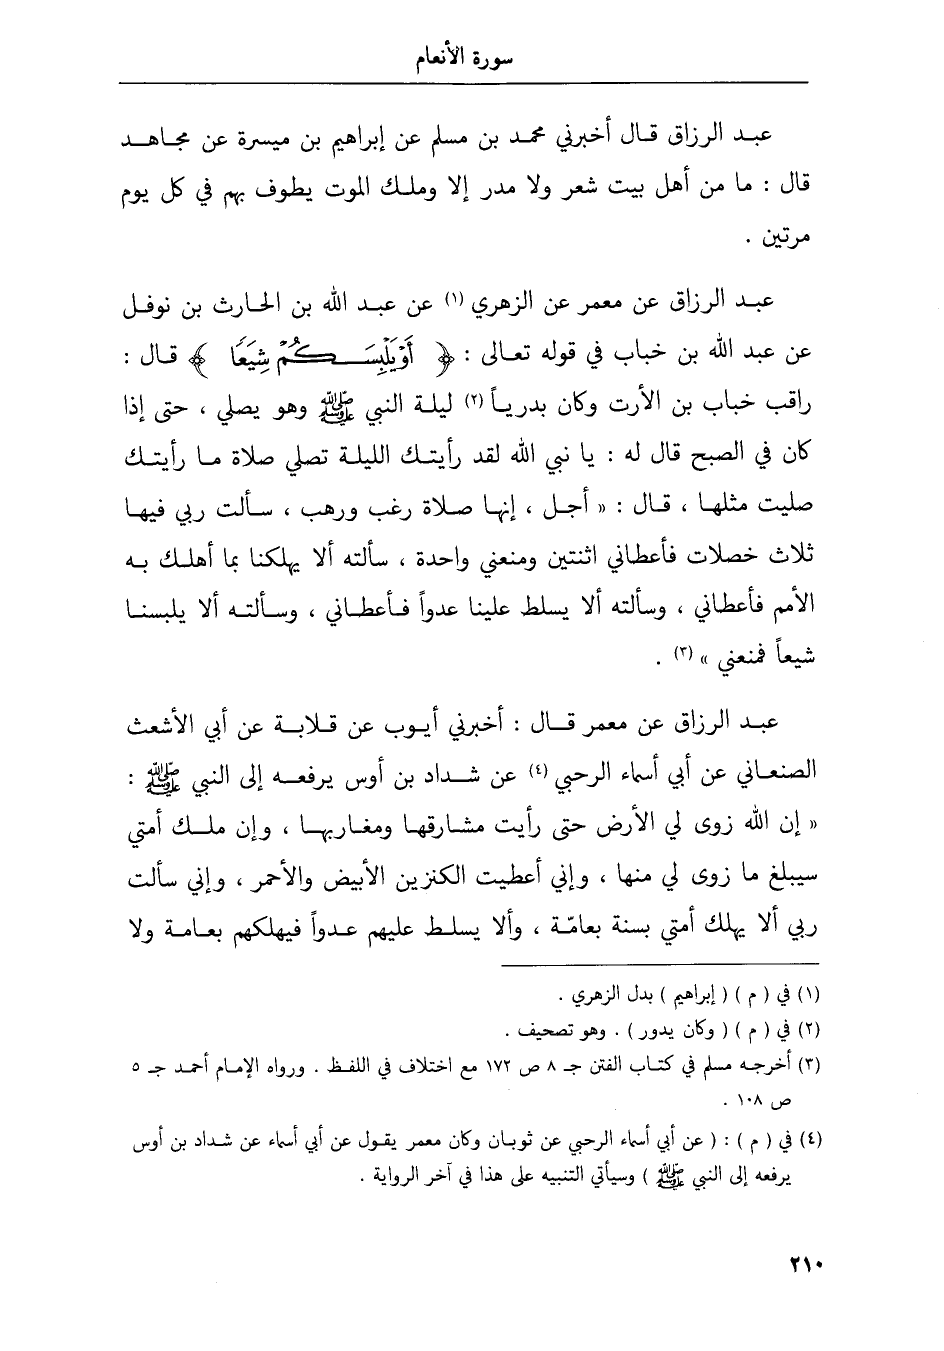 سورة الأنعام
عبد الرزاق قال أخبرني محمد بن مسلم عن إبراهيم بن ميسرة عن مجاهد
قال : ما من أهل بيت شعر ولا مدر إلا وملك الموت يطوف بهم في كل يوم
مرتين .
عبد الرزاق عن معمر عن الزهري (١) عن عبد الله بن الحارث بن نوفل
عن عبد الله بن خباب في قوله تعالى : ﴿ أَوْ يَلْبِسَكُمْ شِيَعًا ﴾ قال :
راقب خباب بن الأرت وكان بدرياً (٢) ليلة النبي ﷺ وهو يصلي ، حتى إذا
كان في الصبح قال له : يا نبي الله لقد رأيتك الليلة تصلي صلاة ما رأيتك
صليت مثلها ، قال : « أجل ، إنها صلاة رغب ورهب ، سألت ربي فيها
ثلاث خصلات فأعطاني اثنتين ومنعني واحدة ، سألته ألا يهلكنا بما أهلك به
الأمم فأعطاني ، وسألته ألا يسلط علينا عدواً فأعطاني ، وسألته ألا يلبسنا
شيعاً فمنعني » (٣) .
عبد الرزاق عن معمر قال : أخبرني أيوب عن قلابة عن أبي الأشعث
الصنعاني عن أبي أسماء الرحبي (٤) عن شداد بن أوس يرفعه إلى النبي ﷺ :
« إن الله زوى لي الأرض حتى رأيت مشارقها ومغاربها ، وإن ملك أمتي
سيبلغ ما زوى لي منها ، وإني أعطيت الكنزين الأبيض والأحمر ، وإني سألت
ربي ألا يهلك أمتي بسنة بعامّة ، وألا يسلط عليهم عدواً فيهلكهم بعامة ولا
(١) في ( م ) ( إبراهيم ) بدل الزهري .
(٢) في ( م ) ( وكان يدور ) . وهو تصحيف .
(٣) أخرجه مسلم في كتاب الفتن جـ ٨ ص ١٧٢ مع اختلاف في اللفظ . ورواه الإمام أحمد جـ ٥
ص ١٠٨ .
(٤) في ( م ) : ( عن أبي أسماء الرحبي عن ثوبان وكان معمر يقول عن أبي أسماء عن شداد بن أوس
يرفعه إلى النبي ﷺ ) وسيأتي التنبيه على هذا في آخر الرواية .
٢١٠